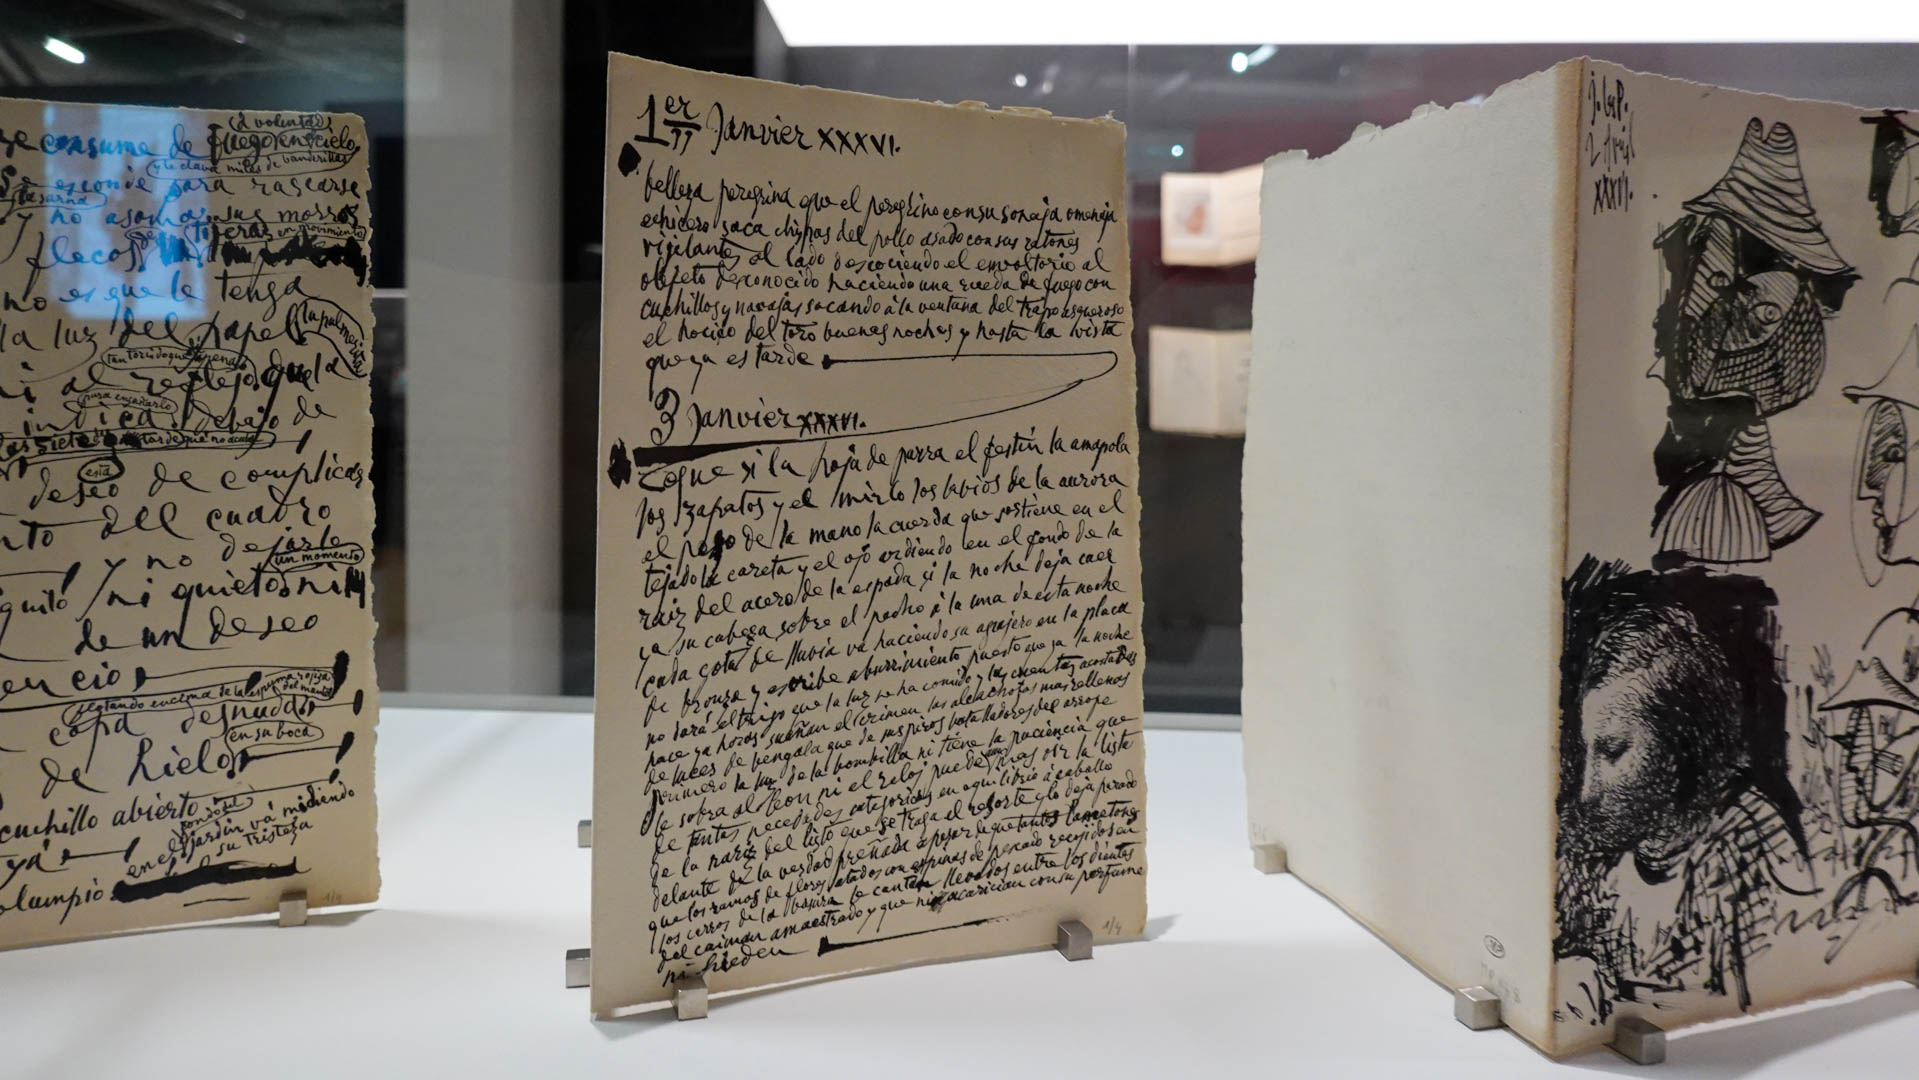 (a voluntad)
se consume de fuego en cielo
y le clava miles de banderillas
se esconde para rascarse
la sarna
y no asoma sus morros
flecos de tijeras en movimiento
no es que le tenga
la luz del papel
la palmeta
ni al reflejo que la
para engañarlo
indica debajo de
las siete
esta
deseo de complicar
nto del cuadro
y no dejarle
un momento
ni quieto ni
de un deseo
encio
de la espuma
capa desnuda
en su boca
de hielo
cuchillo abierto
en el jardín vá midiendo
su tristeza
ya
1/9
1er Janvier XXXVI.
belleza peregrina que el peregrino con su sonaja omenaja
echicero saca chispas del pollo asado con sus ratones
vigilantes al lado descociendo el envoltorio al
objeto desconocido haciendo una rueda de fuego con
cuchillos y navajas sacando à la ventana del trapo asqueroso
el hocico del toro buenas noches y hasta la vista
que ya es tarde
3 Janvier XXXVI.
que si la hoja de parra el festin la amapola
los zapatos y el mirlo los labios de la aurora
el peso de la mano la cuerda que sostiene en el
tejado la careta y el ojo ardiendo en el fondo de la
raiz del acero de la espada si la noche deja caer
ya su cabeza sobre el pecho à la una de esta noche
cada gota de lluvia va haciendo su agujero en la placa
de bronze y escribe aburrimiento puesto que ya la noche
no dará el trigo que la luz se ha comido y las cuentas acostadas
hace ya horas sueñan el crimen las alcachofas mas rellenas
de luces de bengala que de suspiros batalladores del arrope
primero la luz de la bombilla ni tiene la paciencia que
le sobra al leon ni el reloj puede mas oir la lista
de tantas necedades categoricas en equilibrio à caballo
de la nariz del listo que se traga el resorte y lo deja parado
delante de la verdad preñada a pesar de que tantos
que los ramos de flores atados con espinas de pescado recojidos en
los cerros de la basura le cantan llevados entre los dientes
del caiman amaestrado y que ni acarician con su perfume
ni hieden
1/9
2 Avril
XXXVI.